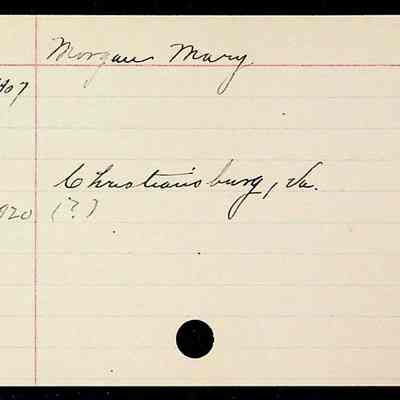 Morgan Mary.
407
Christiansburg, Va.
920 (?)